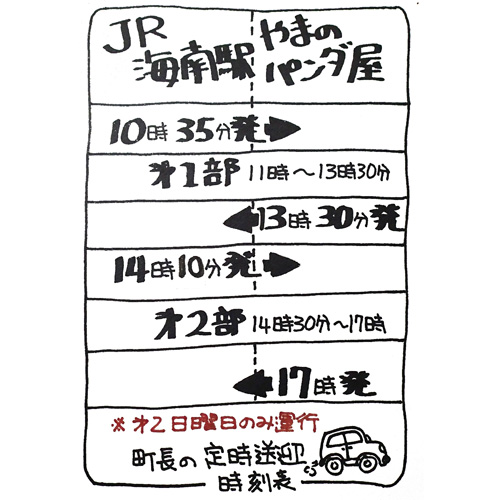 JR
海南駅
やまの
パンダ屋
10時35分発
才1部 11時〜13時30分
13時30分発
14時10分発
才2部 14時30分〜17時
17時発
※才2日曜日のみ運行
町長の定時送迎
時刻表